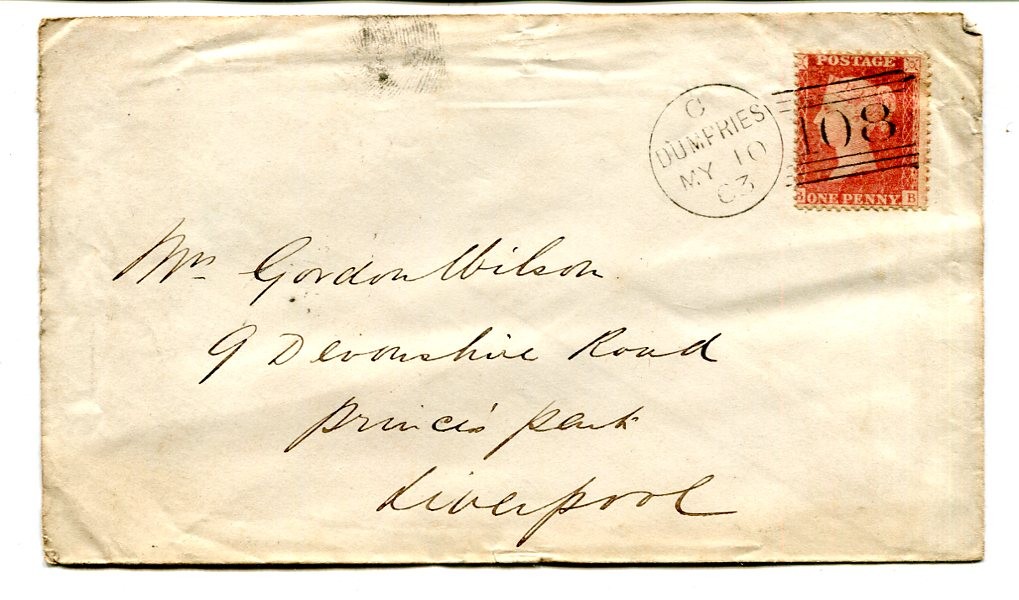 POSTAGE
C
DUMFRIES
MY 10
63
108
ONE PENNY B
Mrs Gordon Wilson
9 Devonshire Road
Princes Park
Liverpool